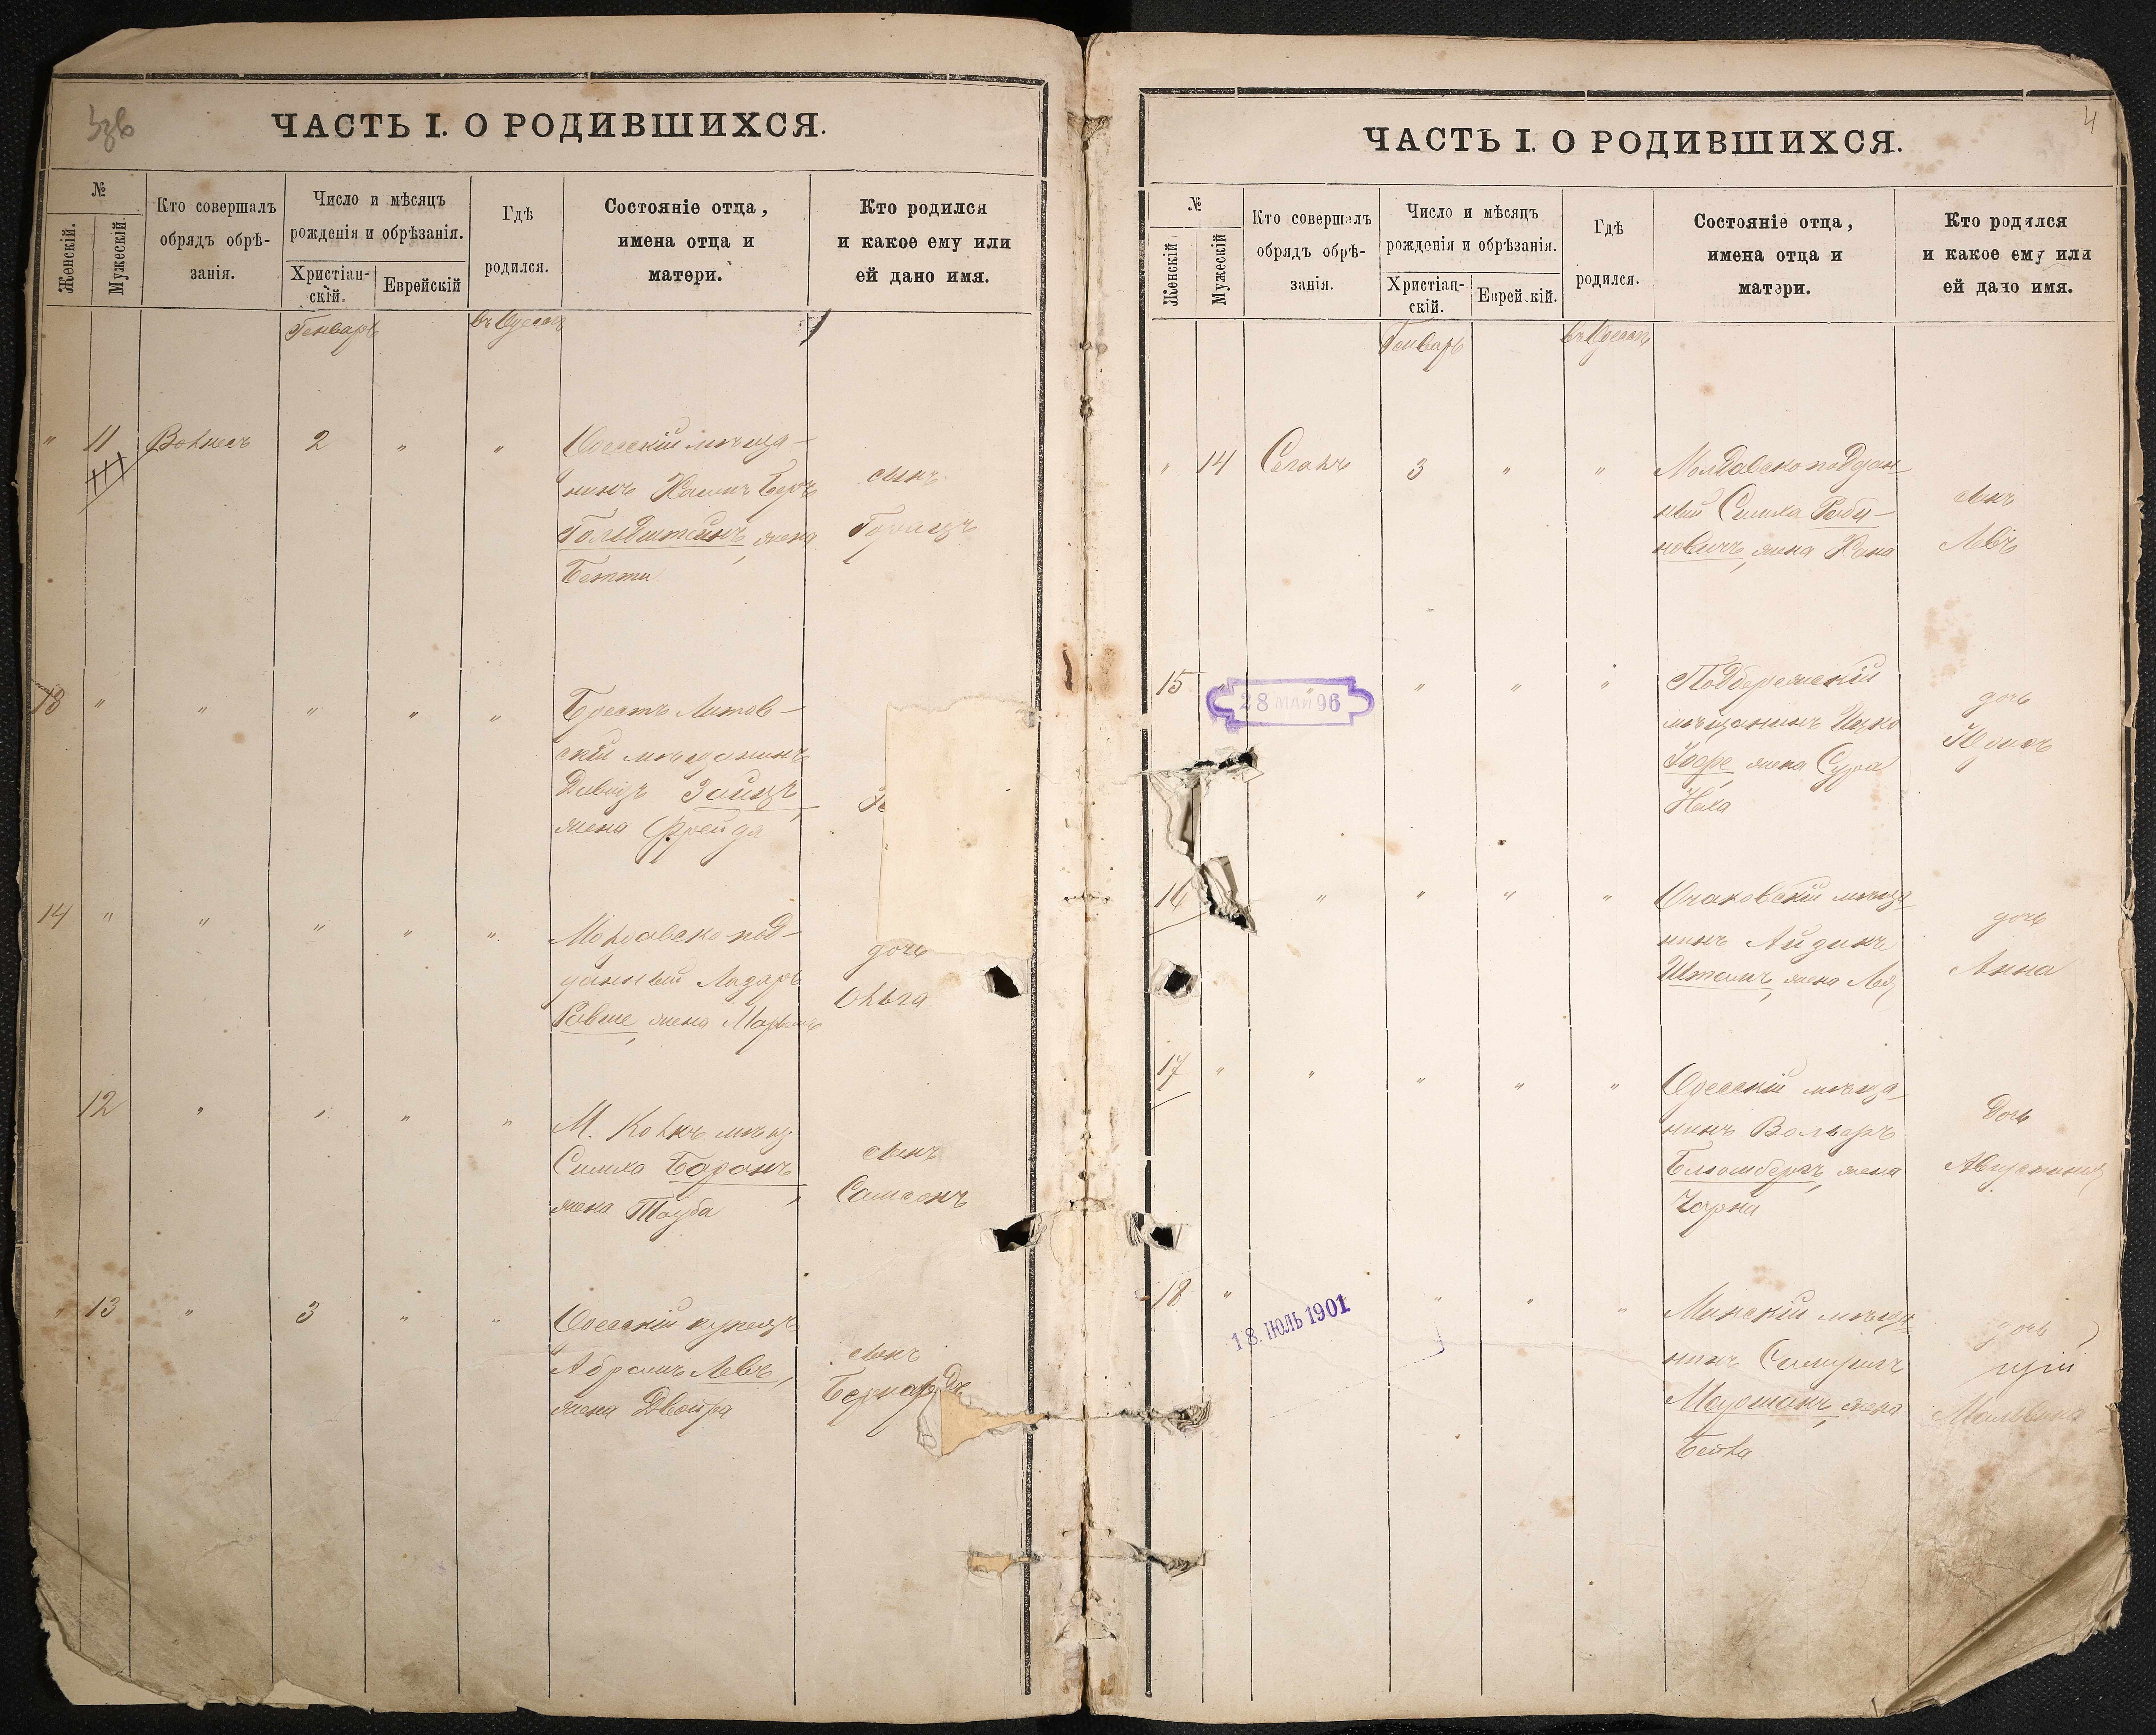 ЧАСТЬ I. О РОДИВШИХСЯ.
№
Женскій.
Мужескій
Кто совершалъ
обрядъ обрѣ-
занія.
Число и мѣсяцъ
рожденія и обрѣзанія.
Христіан-
скій.
Еврейскій
Гдѣ
родился.
Состояніе отца,
имена отца и
матери.
Кто родился
и какое ему или
ей дано имя.
Генварь
въ Одессѣ
" 11 Вольнесъ 2 " "
Одесскій мѣща-
нинъ Хаимъ Беръ
Гольдштейнъ, жена
Бетти
сынъ
13 " " " " "
Брестъ Литов-
скій мѣщанинъ
Давидъ Зайцъ,
жена Фрейда
14 " " " " "
Молдавско под-
данный Лазарь
жена
дочь
Ольга
12 " " " "
М. мѣщ.
Симха Баронъ,
жена Тауба
сынъ
Самсонъ
" 13 " 3 " "
Одесскій купецъ
Абрамъ Левъ,
жена Двойра
сынъ
Бернардъ
4
ЧАСТЬ I. О РОДИВШИХСЯ.
№
Женскій
Мужескій
Кто совершалъ
обрядъ обрѣ-
занія.
Число и мѣсяцъ
рожденія и обрѣзанія.
Христіан-
скій.
Еврейскій.
Гдѣ
родился.
Состояніе отца,
имена отца и
матери.
Кто родился
и какое ему или
ей дано имя.
Генварь
въ Одессѣ
" 14 Сегалъ 3 " "
Молдавско поддан-
ный Симха Раби-
новичъ, жена Хана
сынъ
Левъ
15 " " " " "
28 МАЙ 96
мѣщанинъ Ицко
Іофе жена Сура
дочь
16 " " " "
Очаковскій мѣща-
нинъ Айзикъ
Штамъ, жена Лея
дочь
Анна
17 " " " " "
Одесскій мѣща-
нинъ Вольфъ
Блюмбергъ, жена
Чарна
дочь
Августина
18 " " " "
18. ІЮЛЬ 1901
Минскій мѣща-
нинъ
жена
Бейла
дочь
Мальвина